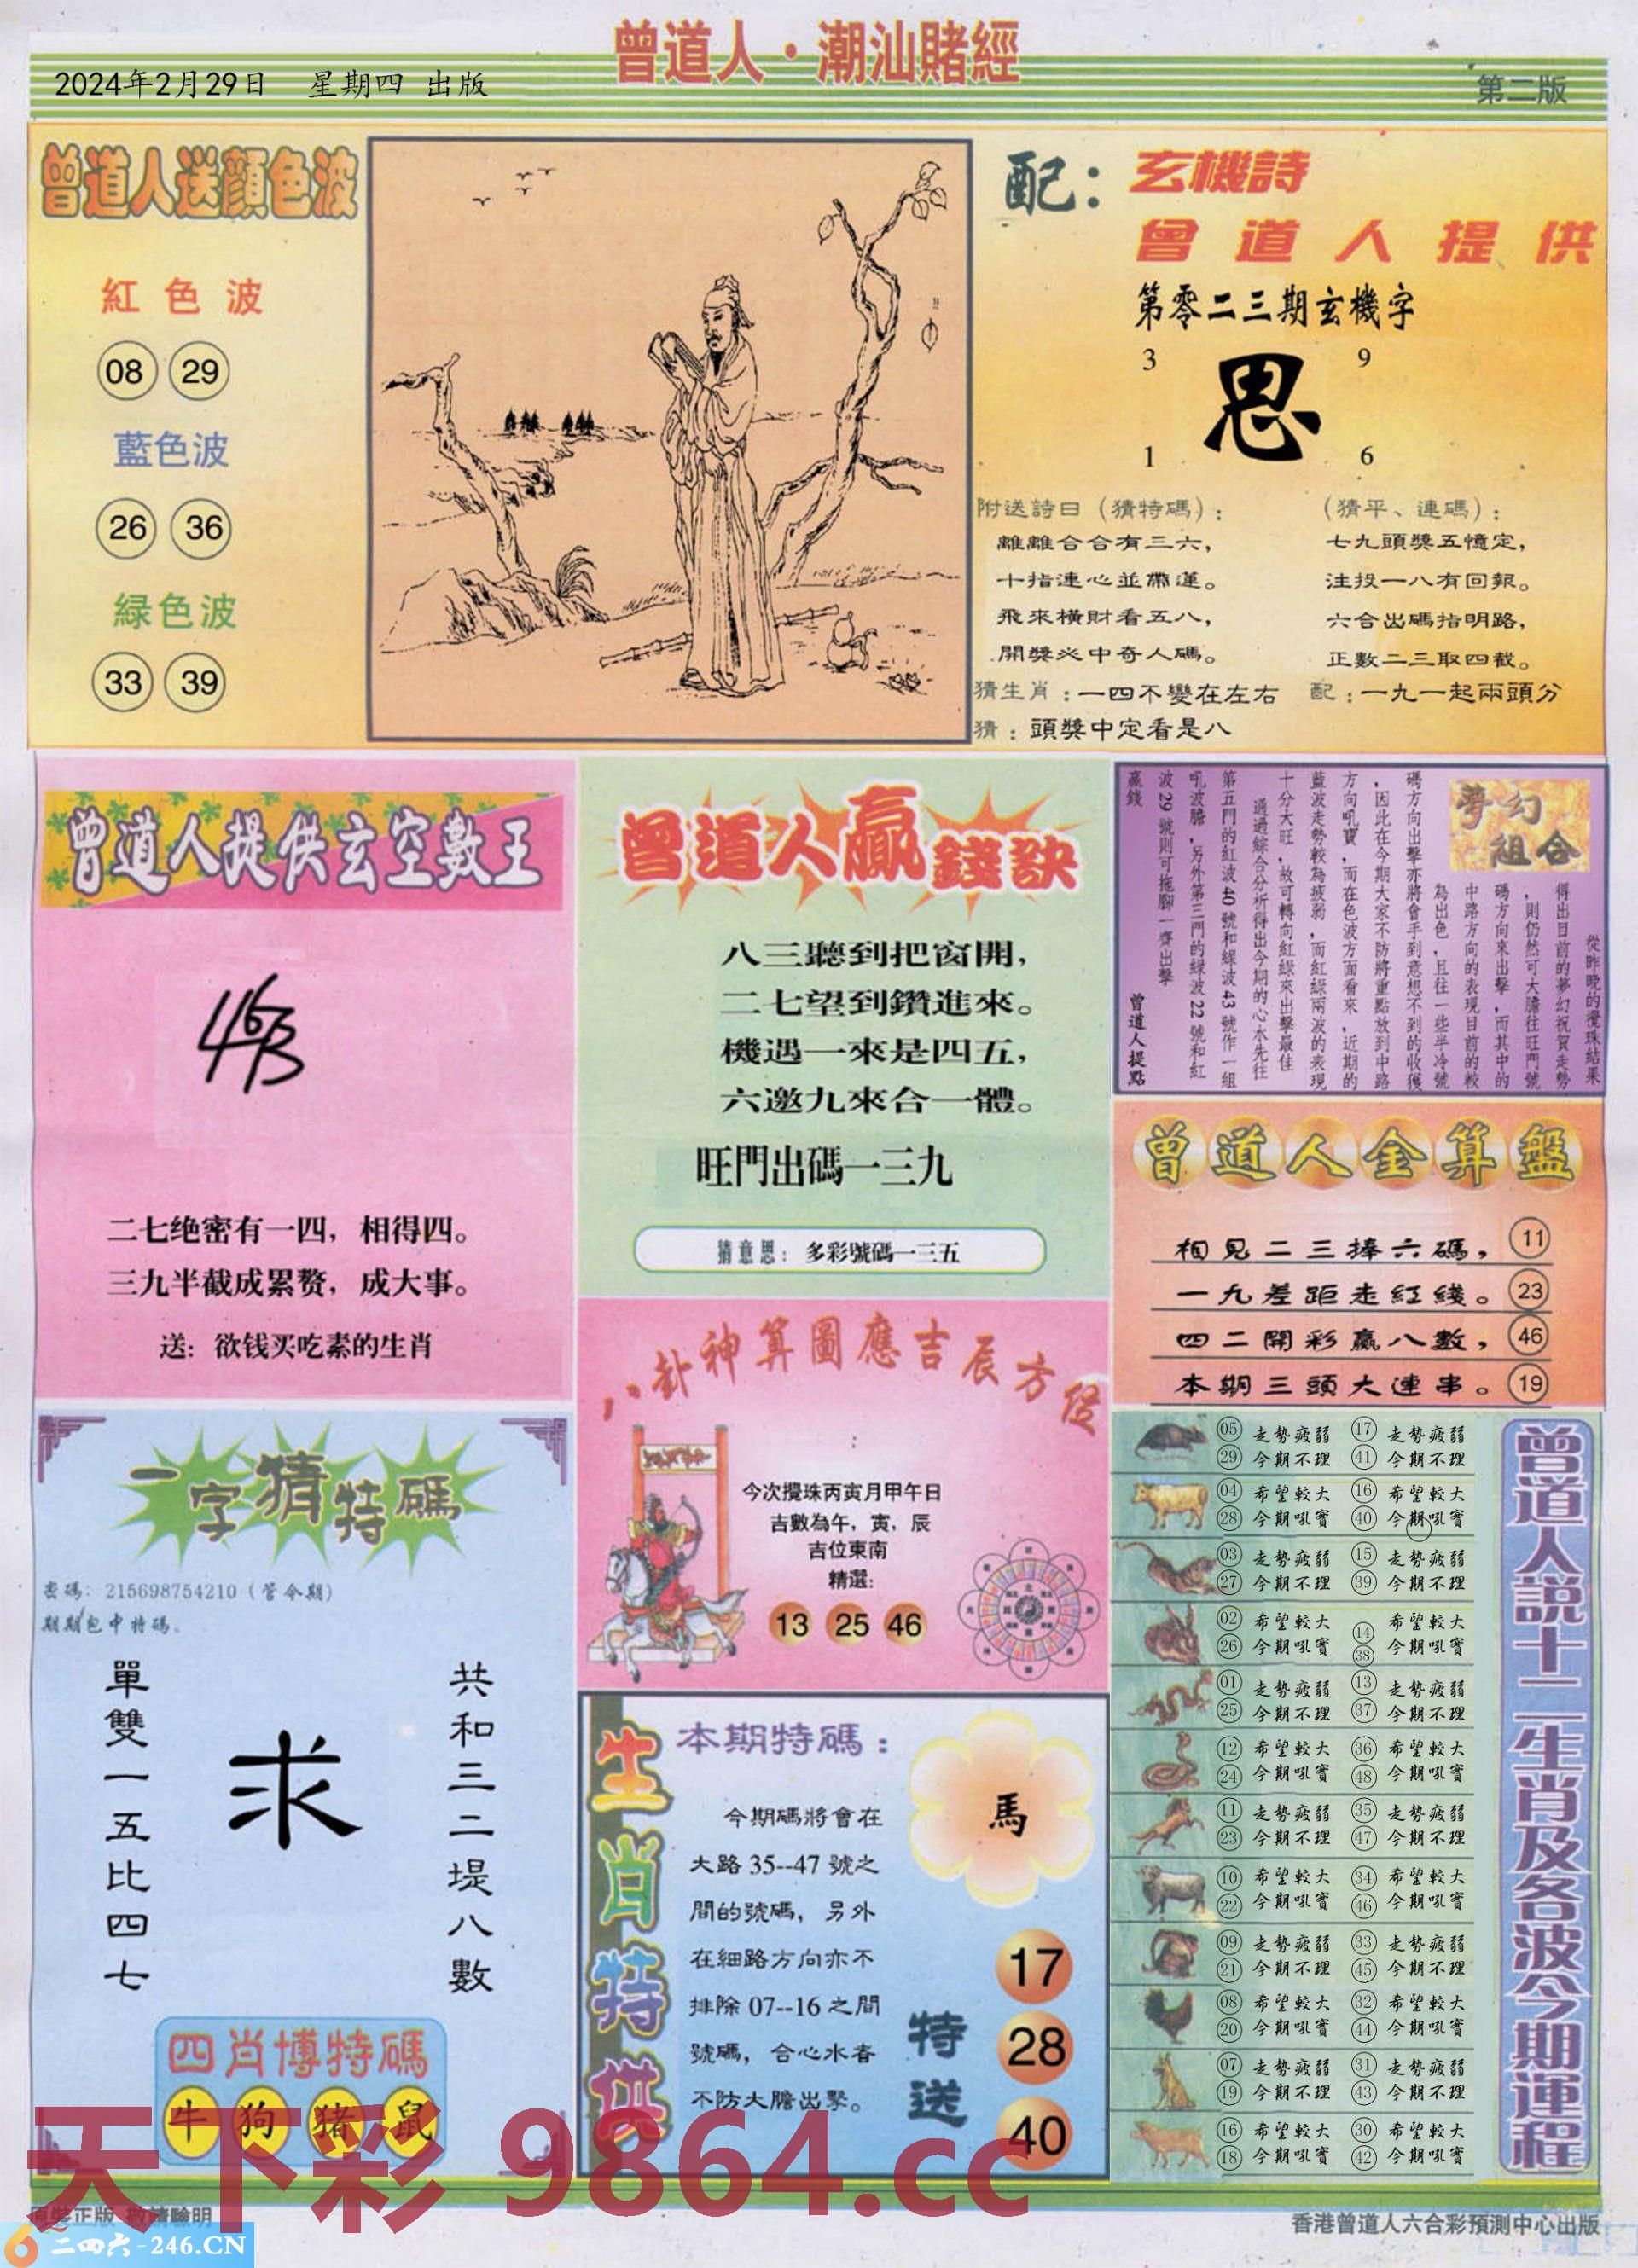 曾道人·潮汕賭經
2024年2月29日 星期四 出版
第二版
曾道人送顏色波
紅色波
08 29
藍色波
26 36
緑色波
33 39
配：
玄機詩
曾道人提供
第零二三期玄機字
3 9
思
1 6
附送詩日（猜特碼）：
離離合合有三六，
十指連心並帶蓮。
飛來橫財看五八，
開獎必中奇人碼。
（猜平、連碼）：
七九頭獎五憶定，
注投一八有回報。
六合出碼指明路，
正數二三取四截。
猜生肖：一四不變在左右
配：一九一起兩頭分
猜：頭獎中定看是八
曾道人提供玄空數王
463
二七绝密有一四，相得四。
三九半截成累赘，成大事。
送：欲钱买吃素的生肖
曾道人贏錢訣
八三聽到把窗開，
二七望到鑽進來。
機遇一來是四五，
六邀九來合一體。
旺門出碼一三九
猜意思：多彩號碼一三五
夢幻組合
從昨晚的攪珠結果
得出目前的夢幻祝賀走勢
，則仍然可大膽往旺門號
碼方向來出擊，而其中的
中路方向的表現目前的較
為出色，且往一些半冷號
碼方向出擊亦將會手到意想不到的收獲
，因此在今期大家不防將重點放到中路
方向吼寶，而在色波方面看來，近期的
藍波走勢較為疲弱，而紅綠兩波的表現
十分大旺，故可轉向紅綠來出擊最佳
通過綜合分析得出今期的心水先往
第五門的紅波40號和綠波43號作一組
吼波膽，另外第三門的緑波22號和紅
波29號則可拖腳一齊出擊
贏錢
曾道人提點
曾道人金算盤
相見二三捧六碼， 11
一九差距走紅綫。 23
四二開彩贏八數， 46
本期三頭大連串。 19
八卦神算圖應吉辰方位
今次攪珠丙寅月甲午日
吉數為午，寅，辰
吉位東南
精選：
13 25 46
一字猜特碼
密碼：215698754210（管今期）
期期包中特碼。
單雙一五比四七
求
共和三二堤八數
四肖博特碼
牛 狗 猪 鼠
生肖特供
本期特碼：
今期碼將會在
大路35--47號之
間的號碼，另外
在細路方向亦不
排除07--16之間
號碼，合心水者
不防大膽出擊。
馬
特送
17
28
40
曾道人說十二生肖及各波今期運程
05 走勢疲弱 17 走勢疲弱
29 今期不理 41 今期不理
04 希望較大 16 希望較大
28 今期吼寶 40 今期吼寶
03 走勢疲弱 15 走勢疲弱
27 今期不理 39 今期不理
02 希望較大 14 希望較大
26 今期吼寶 38 今期吼寶
01 走勢疲弱 13 走勢疲弱
25 今期不理 37 今期不理
12 希望較大 36 希望較大
24 今期吼寶 48 今期吼寶
11 走勢疲弱 35 走勢疲弱
23 今期不理 47 今期不理
10 希望較大 34 希望較大
22 今期吼寶 46 今期吼寶
09 走勢疲弱 33 走勢疲弱
21 今期不理 45 今期不理
08 希望較大 32 希望較大
20 今期吼寶 44 今期吼寶
07 走勢疲弱 31 走勢疲弱
19 今期不理 43 今期不理
16 希望較大 30 希望較大
18 今期吼寶 42 今期吼寶
天下彩 9864.cc
原裝正版 敬請驗明
二四六-246.CN
香港曾道人六合彩預測中心出版